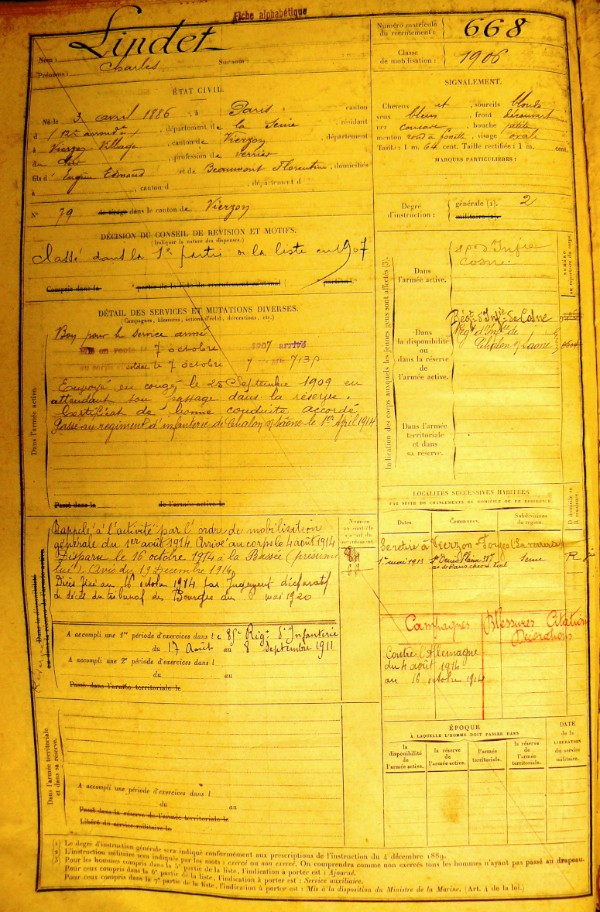 Fiche alphabétique
Nom: Lindet
Prénoms: Charles Surnom:
Numéro matricule du recrutement: 668
Classe de mobilisation: 1906
ÉTAT CIVIL.
Né le 3 avril 1886, à Paris, canton
département de la Seine, résidant
à Vierzon Village, canton de Vierzon, département
du Cher, profession de verrier
fils d'Eugène Edmond et de Beaumont Florentine, domiciliés
à , canton d , département d
N° 79 de tirage dans le canton de Vierzon
SIGNALEMENT.
Cheveux et sourcils blonds
yeux bleus, front découvert
bouche petite
menton rond à fossette, visage ovale
Taille: 1 m. 64 cent. Taille rectifiée: 1 m. cent.
MARQUES PARTICULIÈRES:
Degré d'instruction: générale (1). 2
militaire (2)
DÉCISION DU CONSEIL DE RÉVISION ET MOTIFS.
(Indiquer la nature des dispenses.)
Classé dans la 1re partie de la liste en 1907
Compris dans la partie de la liste du recrutement cantonal
DÉTAIL DES SERVICES ET MUTATIONS DIVERSES.
(Campagnes, blessures, actions d'éclat, décorations, etc.)
Bon pour le service armé
7 octobre 1907 arrivé
7 octobre
Envoyé en congé le 25 Septembre 1909 en
attendant son passage dans la réserve.
Certificat de bonne conduite accordé
Passé au régiment d'infanterie de Chalon s/ Saône le 1er April 1914
Passé dans la de l'armée active le
Dans l'armée active.
Indication des corps auxquels les jeunes gens sont affectés
Dans l'armée active.
Cosne
Dans la disponibilité ou dans la réserve de l'armée active.
Régt d'Infie de Cosne
Régt d'Infie de
Chalon s/ Saone
Dans l'armée territoriale et dans sa réserve.
Rappelé à l'activité par l'ordre de mobilisation
générale du 1er août 1914. Arrivé au corps le 4 août 1914
Disparu le 16 octobre 1914 à la Bassée (présumé
tué) Avis du 19 Décembre 1914
16 octobre 1914 par jugement déclaratif
de décès du tribunal de Bourges du 6 mai 1920
A accompli une 1re période d'exercices dans le 85e Rég. d'Infanterie
du 17 Août au 8 Septembre 1911
A accompli une 2e période d'exercices dans l
du au
Passé dans l'armée territoriale le
LOCALITÉS SUCCESSIVES HABITÉES
PAR SUITE DE CHANGEMENTS DE DOMICILE OU DE RÉSIDENCE.
Dates. Communes. Subdivisions de région. D. domicile ou R. résidence.
Se retire à Vierzon
1er mai 1913
Campagnes Blessures Citations
Décorations
Contre l'Allemagne
du 4 août 1914
au 16 octobre 1914
ÉPOQUE
À LAQUELLE L'HOMME DOIT PASSER DANS
la disponibilité de l'armée active.
la réserve de l'armée active.
l'armée territoriale.
la réserve de l'armée territoriale.
DATE de la LIBÉRATION du service militaire.
Dans l'armée territoriale et dans sa réserve.
A accompli une période d'exercices dans l
du au
Passé dans la réserve de l'armée territoriale le
Libéré du service militaire le
(1) Le degré d'instruction générale sera indiqué conformément aux prescriptions de l'Instruction du 4 décembre 1889.
(2) L'instruction militaire sera indiquée par les mots: exercé ou non exercé. On comprendra comme non exercés tous les hommes n'ayant pas passé au drapeau.
Pour les hommes compris dans la partie de la liste, l'indication à porter est: Ajourné.
Pour ceux compris dans la 6e partie de la liste, l'indication à porter est: Service auxiliaire.
Pour ceux compris dans la 7e partie de la liste, l'indication à porter est: Mis à la disposition du Ministre de la Marine. (Art. 4 de la loi.)